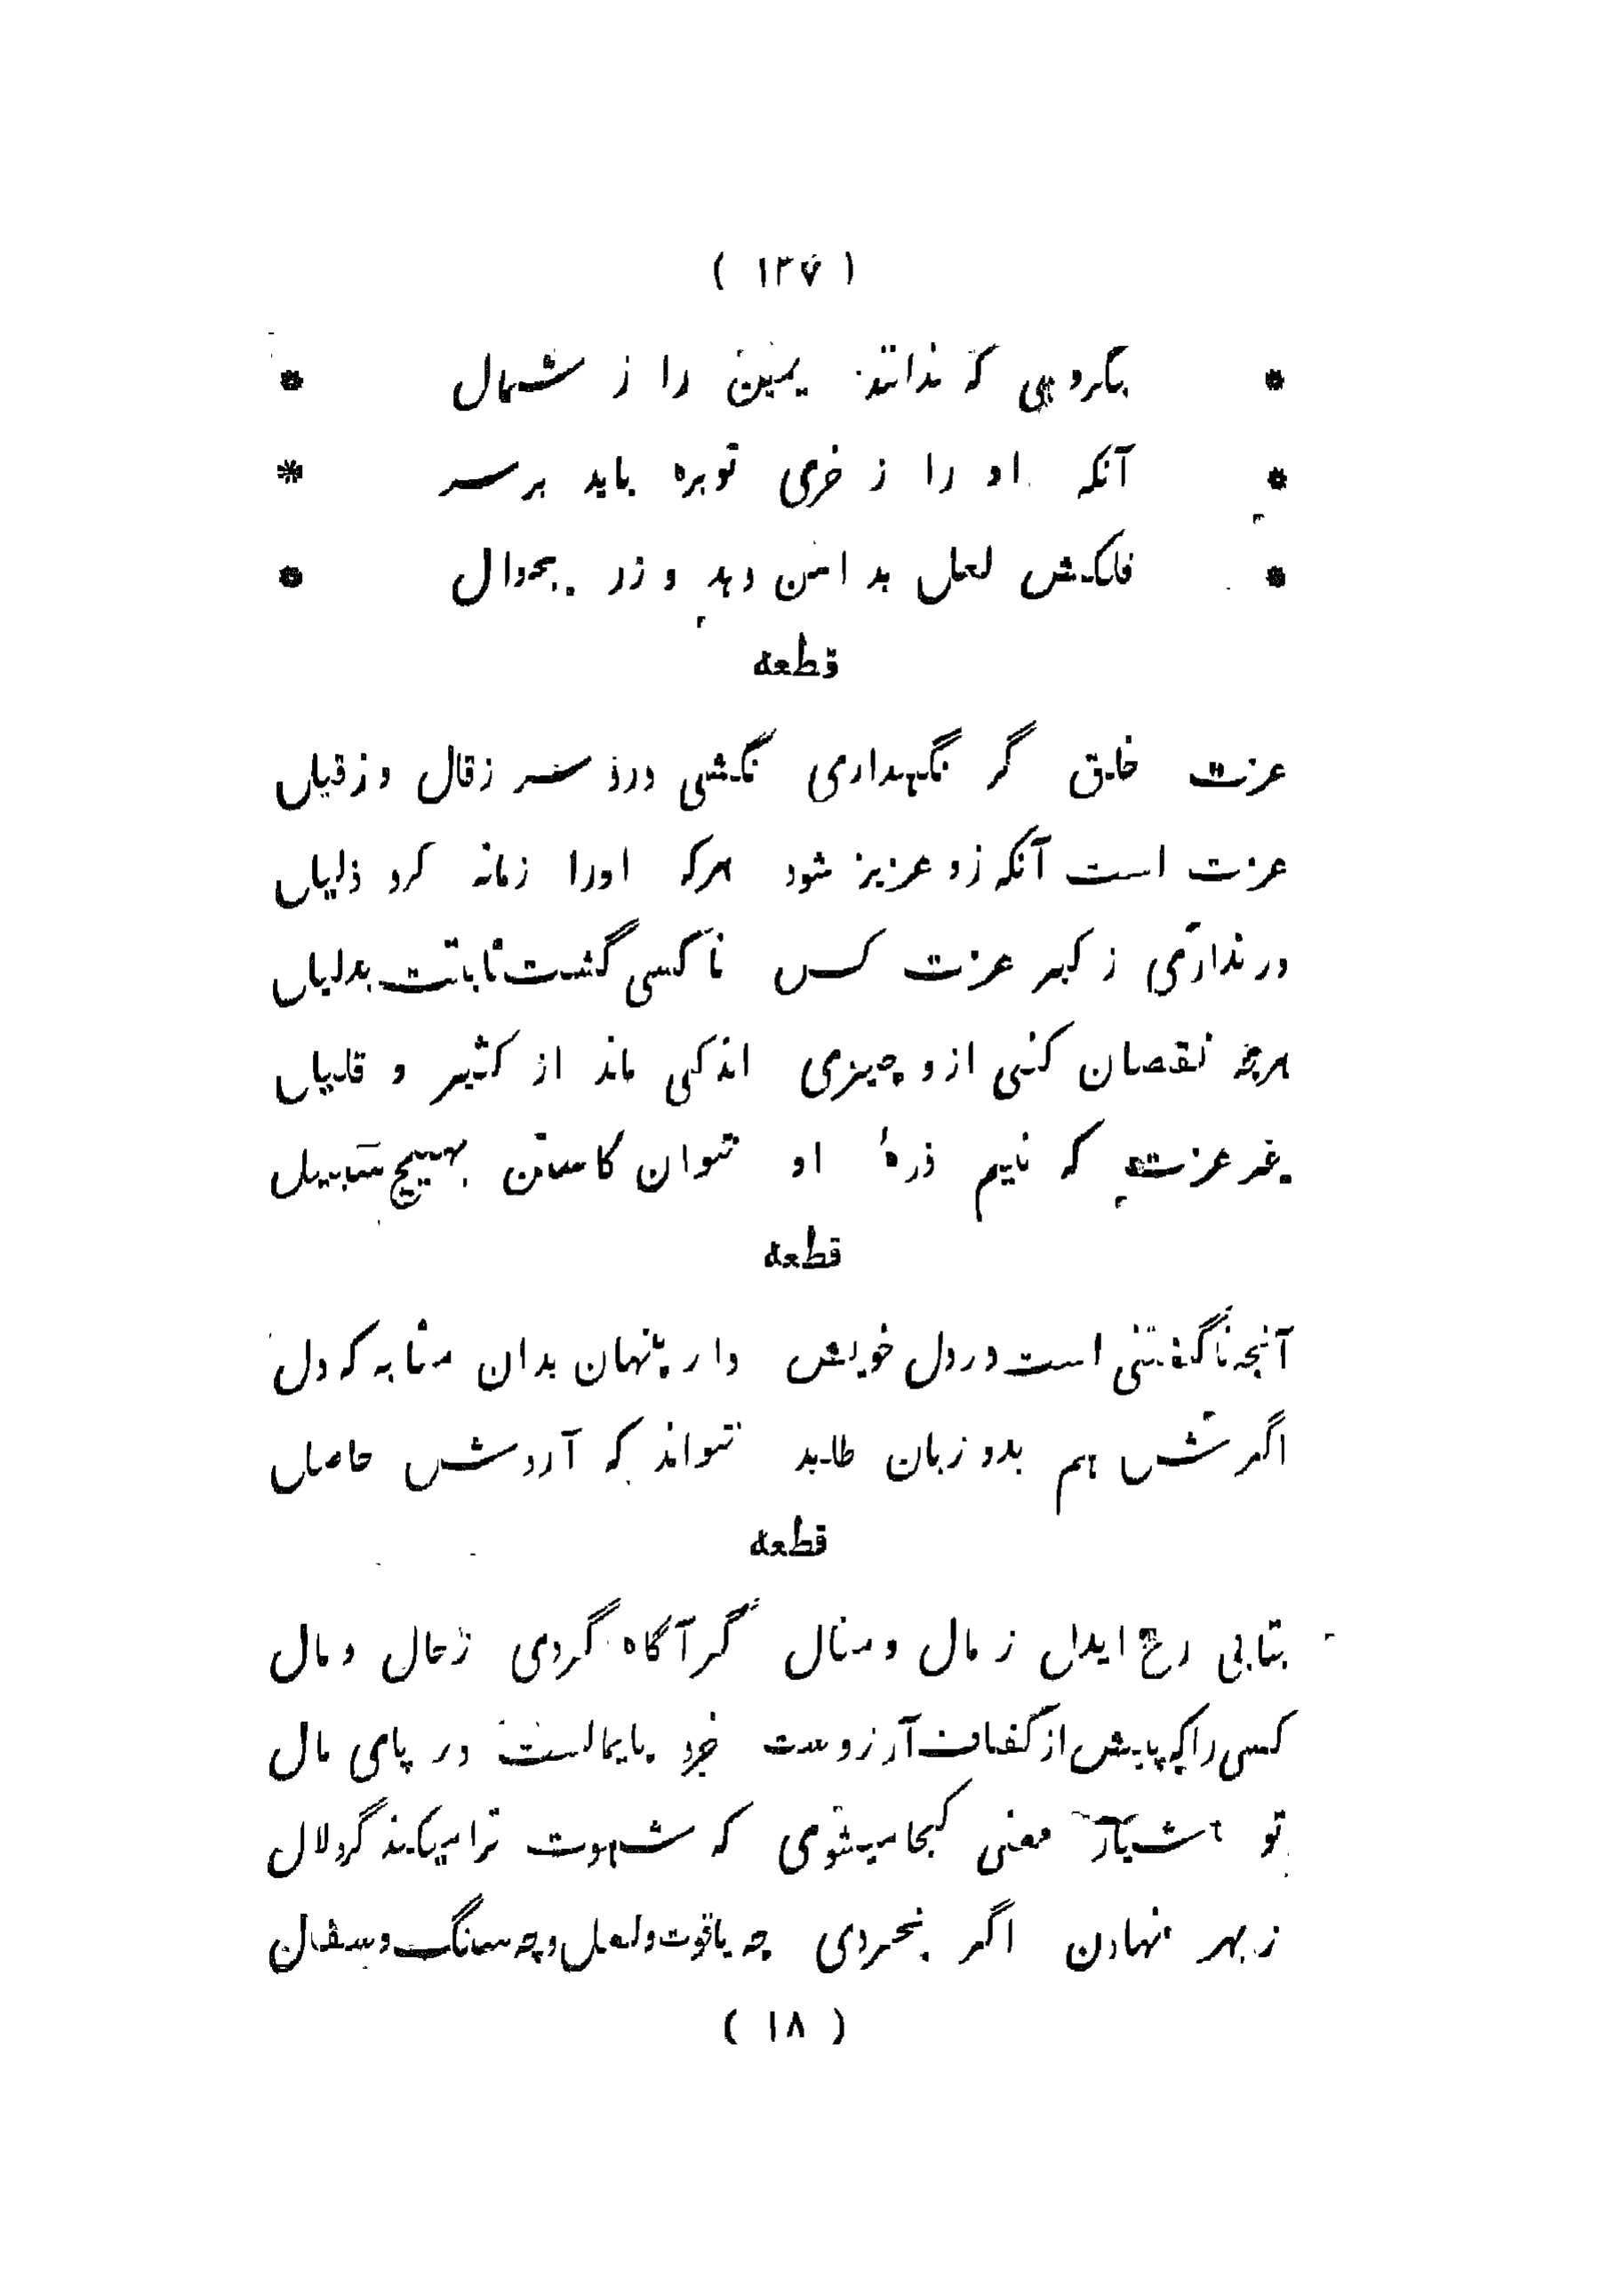 ( ۱۳۷ )
* بگروهی که ندانند یمین را ز شمال *
* آنکه او را ز خری توبره باید بر سر *
* فلکش لعل بدامن دهد و زر بجوال *
قطعه
عزت خلق گر نگهداری نکشی درد سر ز قال و ز قیل
عزت است آنکه زو عزیز شود هرکه اورا زمانه کرد ذلیل
ور نداری ز کبر عزت کس ناکسی گشت ثابتت بدلیل
هرچه نقصان کنی ازو چیزی اندکی ماند از کثیر و قلیل
بغیر عزت که نیم ذرهٔ او نتوان کاستن بهیچ سبیل
قطعه
آنچه ناگفتنی است در دل خویش دار پنهان بدان مثابه که دل
اگرش هم بدو زبان طلبد نتواند که آردش حاصل
قطعه
بتابی رخ ایدل ز مال و منال گر آگاه گردی ز حال و مال
کسی را که پایش از کفاف آرزوست خرد پایمالست در پای مال
تو معنی کجا میشوی که شهوت ترا میکند گرد لال
ز بهر نهادن اگر بخردی چه یاقوت و لعل و چه سنگ و سفال
( ۱۸ )